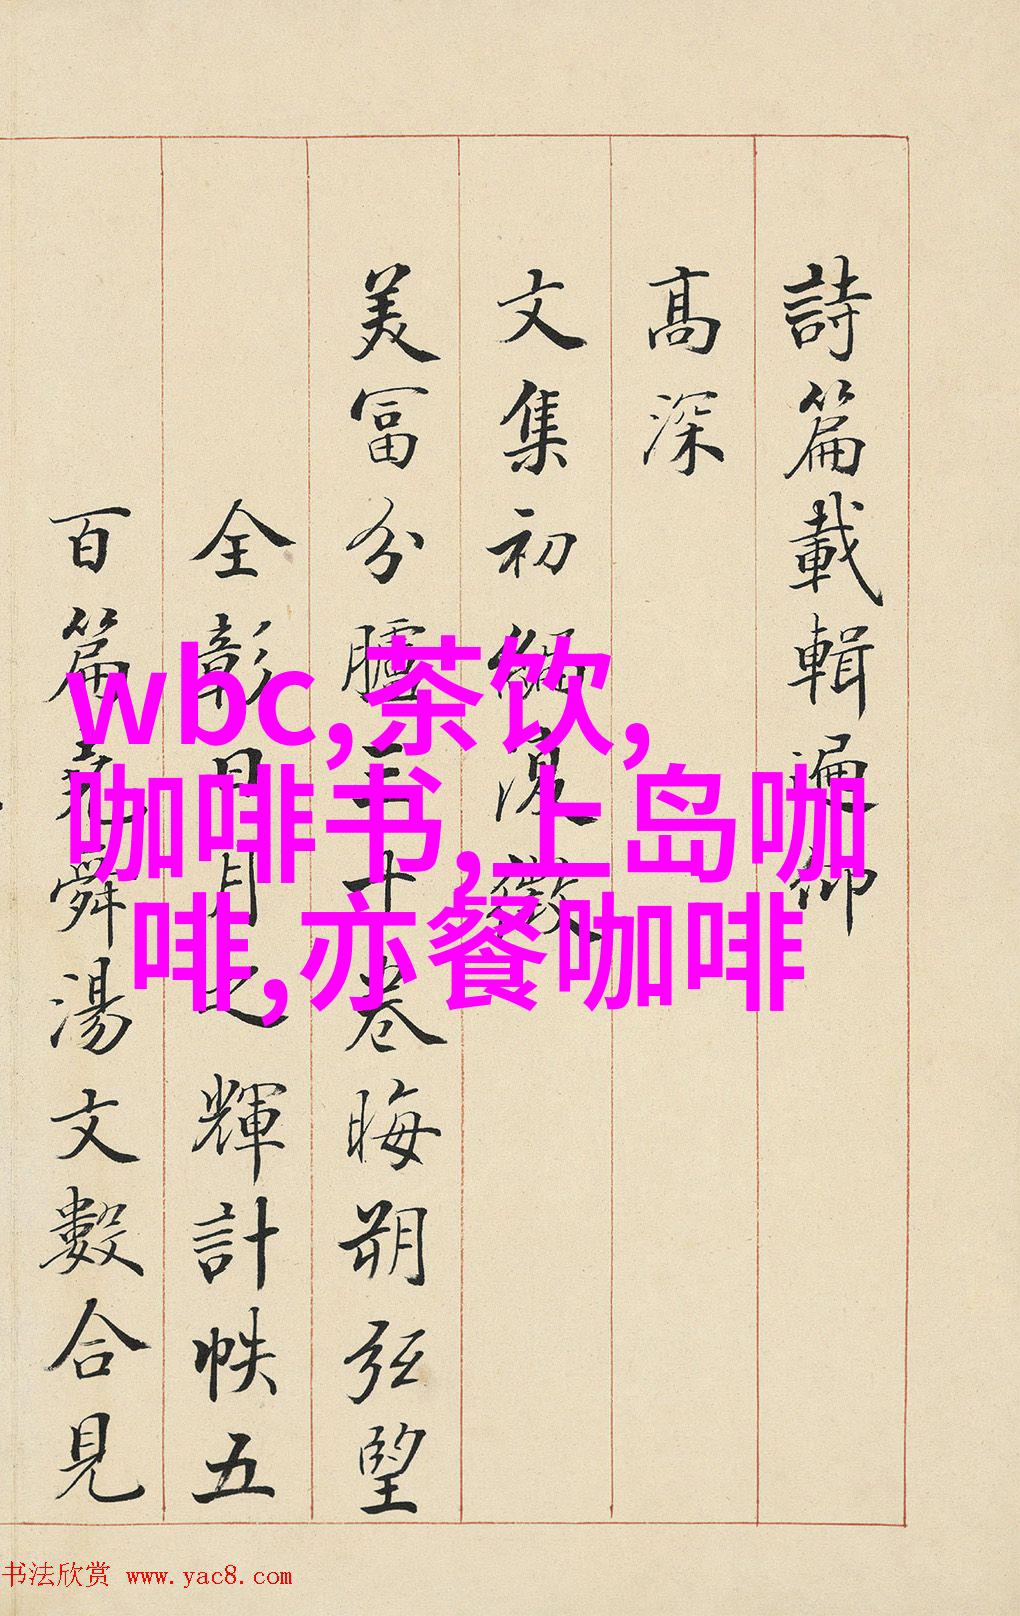 詩篇載輯遍仰
高深
文集初編復徵
美富分臚三十卷晦朔弦望
全彰日月之輝計帙五
百篇堯舜湯文數合見
wbc,茶饮,
咖啡书,上岛咖
啡,亦餐咖啡
书法欣赏 www.yac8.com